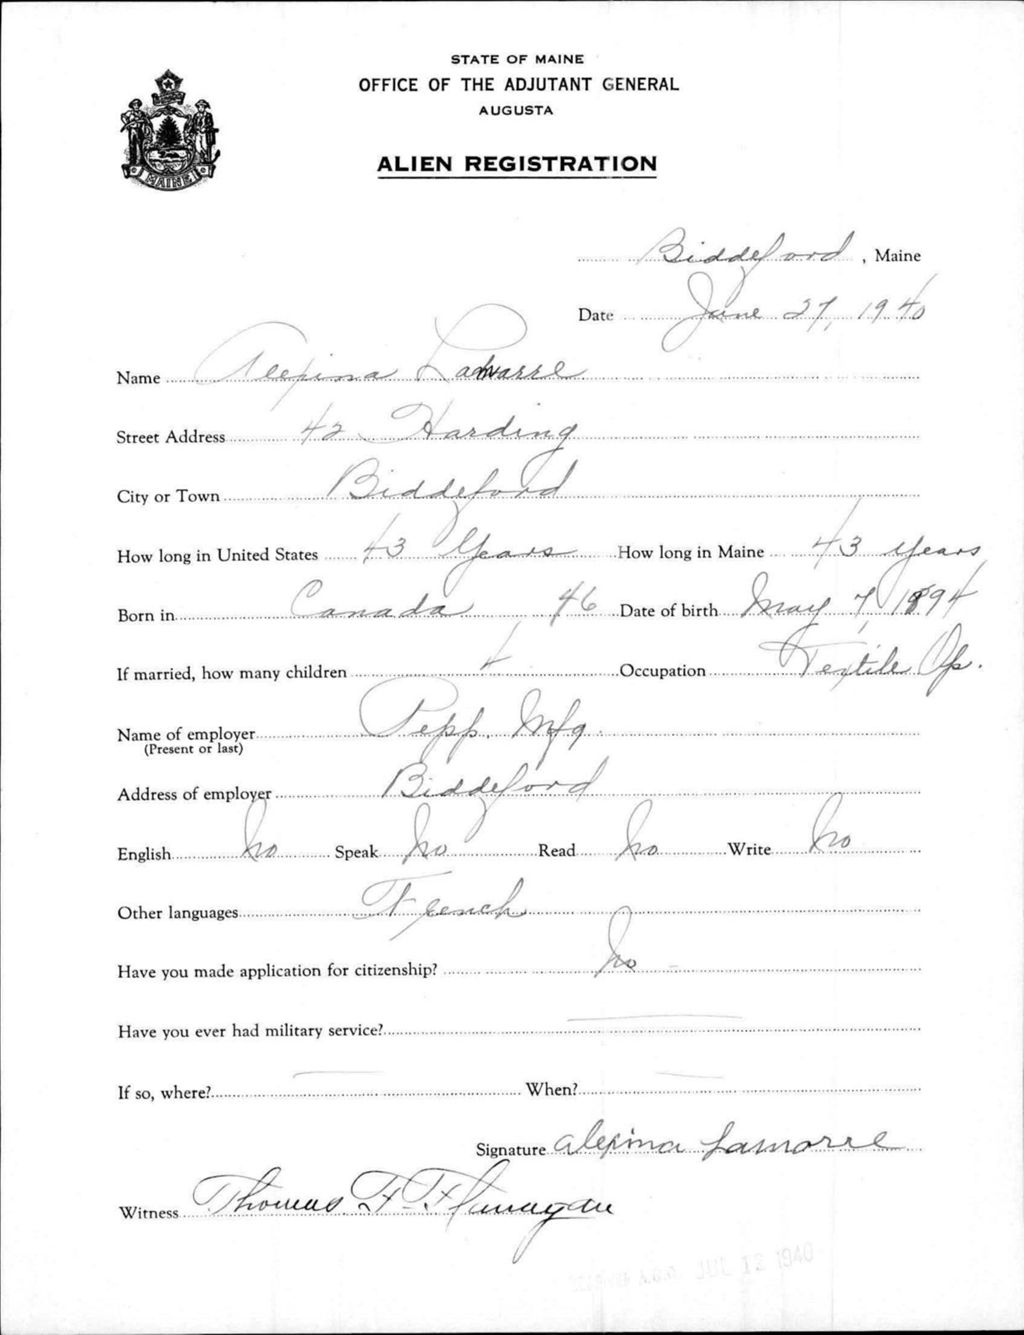 STATE OF MAINE
OFFICE OF THE ADJUTANT GENERAL
AUGUSTA
ALIEN REGISTRATION
MAINE
Biddeford, Maine
Date June 27, 1940
Name Alexina Lamarre
Street Address 42 Harding
City or Town Biddeford
How long in United States 43 Years How long in Maine 43 years
Born in Canada 46 Date of birth May 7, 1894
If married, how many children 4 Occupation Textile Op.
Name of employer Pepp. Mfg.
(Present or last)
Address of employer Biddeford
English No Speak No Read No Write No
Other languages French
Have you made application for citizenship? No -
Have you ever had military service? —
If so, where? — When? —
Signature Alexina Lamarre
Witness Thomas F Flanagan
A.G.O. JUL 12 1940